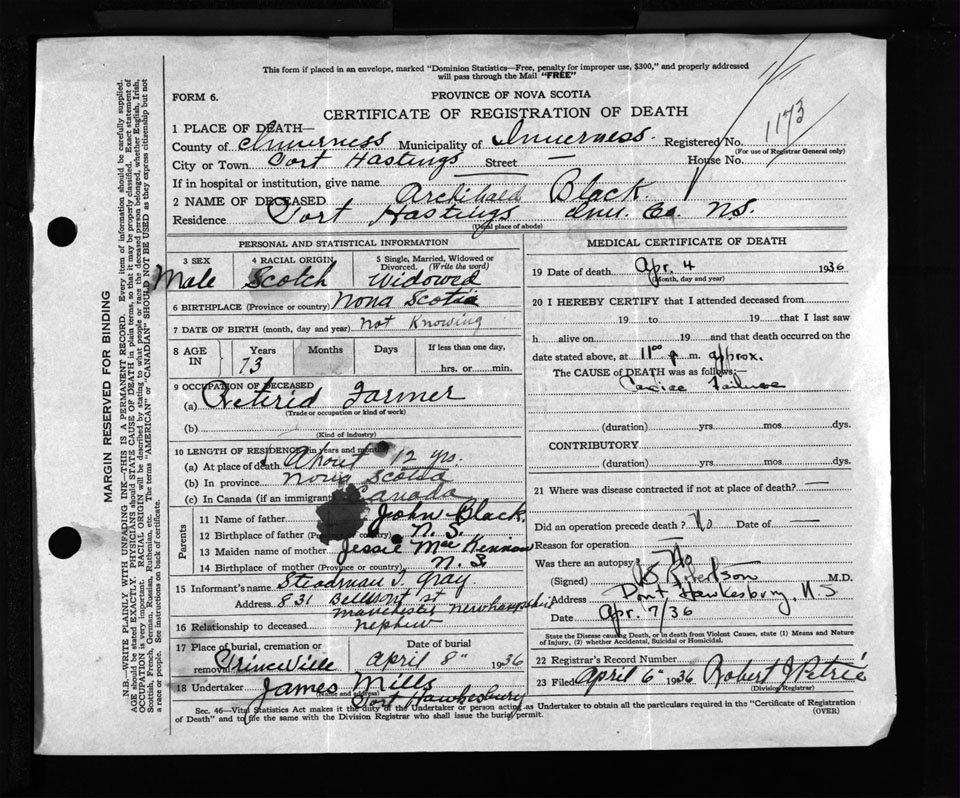 This form if placed in an envelope, marked "Dominion Statistics—Free, penalty for improper use, $300," and properly addressed
will pass through the Mail "FREE"
FORM 6.
PROVINCE OF NOVA SCOTIA
CERTIFICATE OF REGISTRATION OF DEATH
1173
1 PLACE OF DEATH—
County of Inverness Municipality of Inverness. Registered No.
(For use of Registrar General only)
City or Town Port Hastings Street — House No.
If in hospital or institution, give name
2 NAME OF DECEASED Archibald Black
Residence Port Hastings Inv. Co. N.S.
(Usual place of abode)
PERSONAL AND STATISTICAL INFORMATION
3 SEX 4 RACIAL ORIGIN 5 Single, Married, Widowed or
Divorced. (Write the word)
Male Scotch Widowed
6 BIRTHPLACE (Province or country) Nova Scotia
7 DATE OF BIRTH (month, day and year) Not Knowing
8 AGE IN Years Months Days If less than one day,
73 hrs. or min.
9 OCCUPATION OF DECEASED
(a) Retirid Farmer
(Trade or occupation or kind of work)
(b)
(Kind of industry)
10 LENGTH OF RESIDENCE (in years and months)
(a) At place of death About 12 yrs.
(b) In province Nova Scotia
(c) In Canada (if an immigrant) Canada
Parents
11 Name of father John Black.
12 Birthplace of father (Province or country) N. S.
13 Maiden name of mother Jessie Mac Kennon
14 Birthplace of mother (Province or country) N. S
15 Informant's name Steadman J. Gray
Address 831 Bellmont st
Manchester Newhampshire
16 Relationship to deceased nephew
17 Place of burial, cremation or
removal Princeville
Date of burial
April 8" 1936
18 Undertaker James Mills
(Name and address)
Port Hawkesbury
MEDICAL CERTIFICATE OF DEATH
19 Date of death Apr. 4 1936
(Month, day and year)
20 I HEREBY CERTIFY that I attended deceased from
19 to 19 that I last saw
h alive on 19 and that death occurred on the
date stated above, at 11 00 p. m. approx.
The CAUSE of DEATH was as follows:—
Cardiac Failure
(duration) yrs mos dys.
CONTRIBUTORY
(duration) yrs mos dys.
21 Where was disease contracted if not at place of death? —
Did an operation precede death? No Date of —
Reason for operation —
Was there an autopsy? No
(Signed) M.D.
Address Port Hawkesbury, N S
Date Apr. 7/36
State the Disease causing Death, or in death from Violent Causes, state (1) Means and Nature
of Injury, (2) whether Accidental, Suicidal or Homicidal.
22 Registrar's Record Number
23 Filed April 6" 1936 Robert J Petrie
(Division Registrar)
Sec. 46—Vital Statistics Act makes it the duty of the Undertaker or person acting as Undertaker to obtain all the particulars required in the "Certificate of Registration
of Death" and to file the same with the Division Registrar who shall issue the burial permit.
(OVER)
MARGIN RESERVED FOR BINDING
N.B.—WRITE PLAINLY WITH UNFADING INK—THIS IS A PERMANENT RECORD. Every item of information should be carefully supplied.
AGE should be stated EXACTLY. PHYSICIANS should STATE CAUSE OF DEATH in plain terms, so that it may be properly classified. Exact statement of
OCCUPATION is very important. RACIAL ORIGIN will be described by stating to what people or race the deceased person belonged, whether English, Irish,
Scottish, French, German, Russian, Ruthenian, etc. The terms "AMERICAN" or "CANADIAN" SHOULD NOT BE USED as they express citizenship but not
a race or people. See instructions on back of certificate.